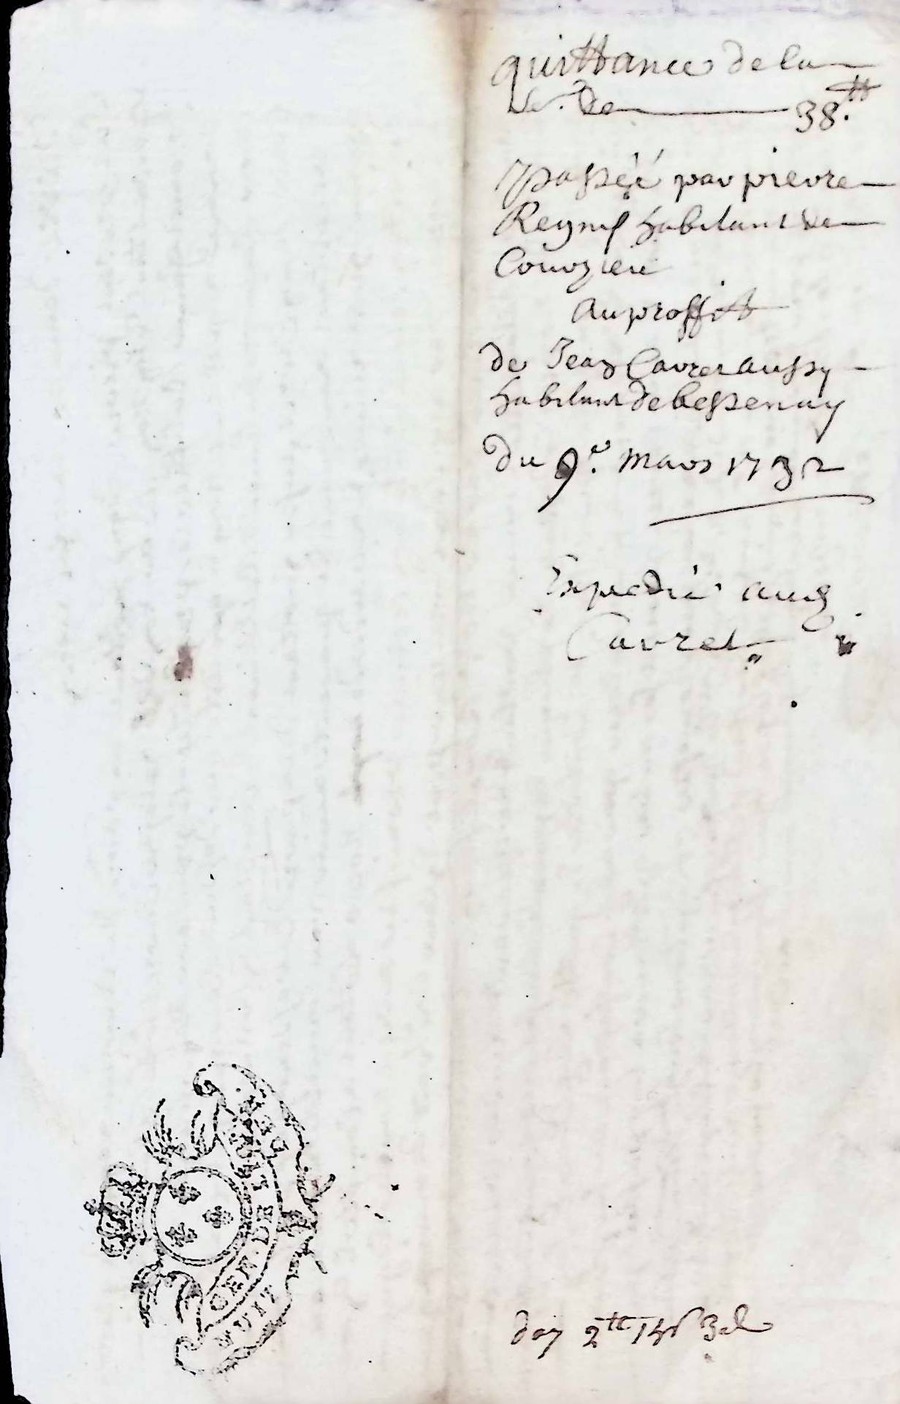 quittance de la
de 38.tt
passéé par pierre
Reynis habitant de
Couozieu
Au proffitt
de Jean Cavret aussy
habitant de bessenay
du 9.e mars 1732
Expedié aud
Cavret
doy 2tt 3d
GEN DE
HUIT